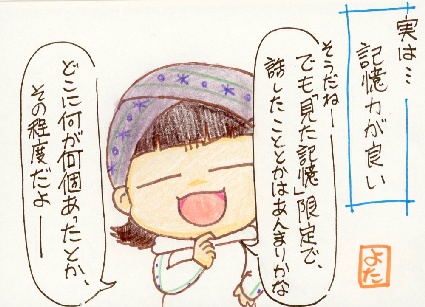 実は…
記憶力が良い
そうだねー
でも「見た記憶」限定で、
話したこととかはあんまりかな
どこに何が何個あったとか、
その程度だよー
よた